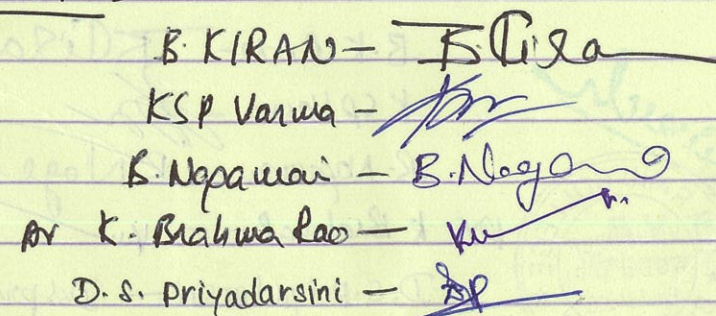 B. KIRAN – B. Kira
KSP Varma –
B. Nagamani – B. Nagam
Ar K. Brahma Rao –
D. S. Priyadarsini – DSP